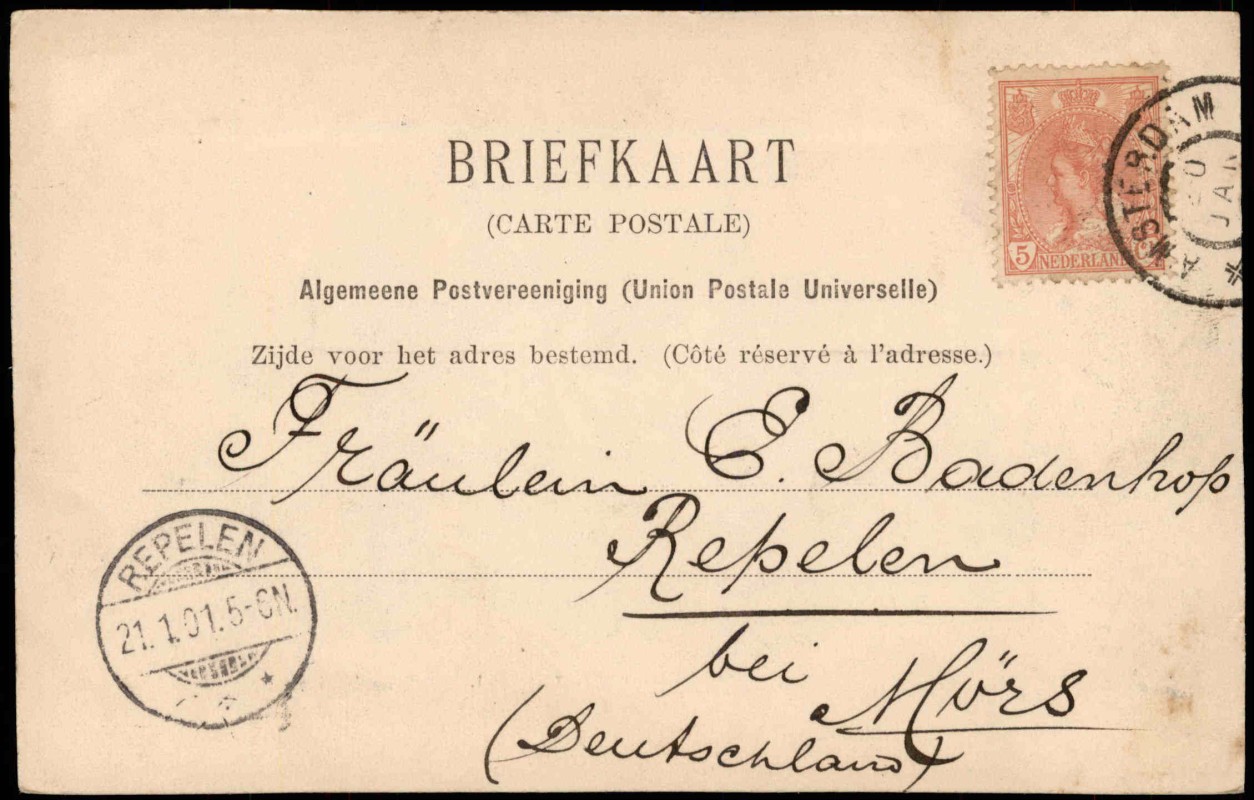 BRIEFKAART
(CARTE POSTALE)
Algemeene Postvereeniging (Union Postale Universelle)
Zijde voor het adres bestemd. (Côté réservé à l'adresse.)
5 NEDERLAND
AMSTERDAM
20 JAN
Fräulein E. Badenhop
Repelen
bei Mörs
(Deutschland)
REPELEN
21.1.01.5-6N.